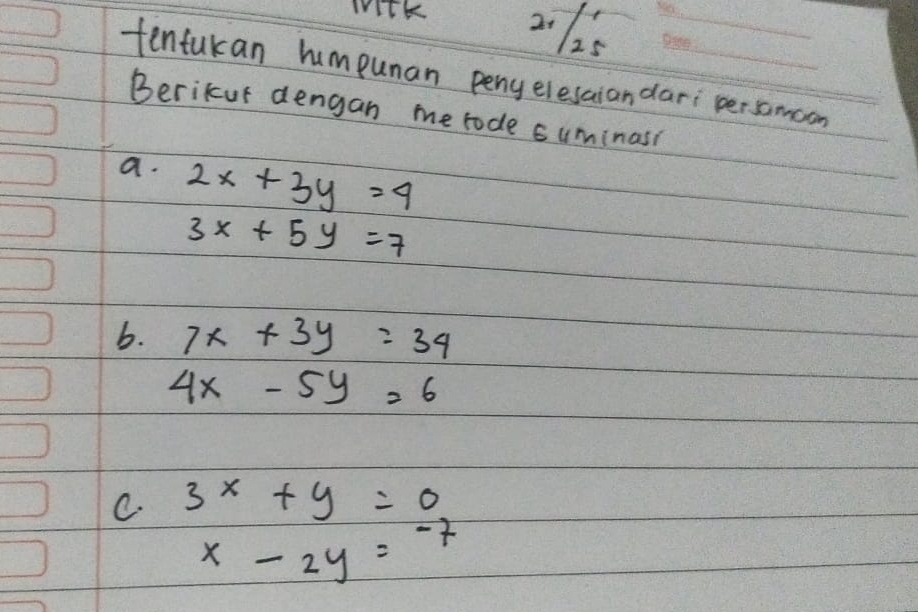 MTK
21/1/25
No.
Date.
tentukan himpunan penyelesaian dari persamaan
Berikut dengan metode Eliminasi
a. 2x + 3y = 4
3x + 5y = 7
b. 7x + 3y = 34
4x - 5y = 6
c. 3x + y = 0
x - 2y = -7